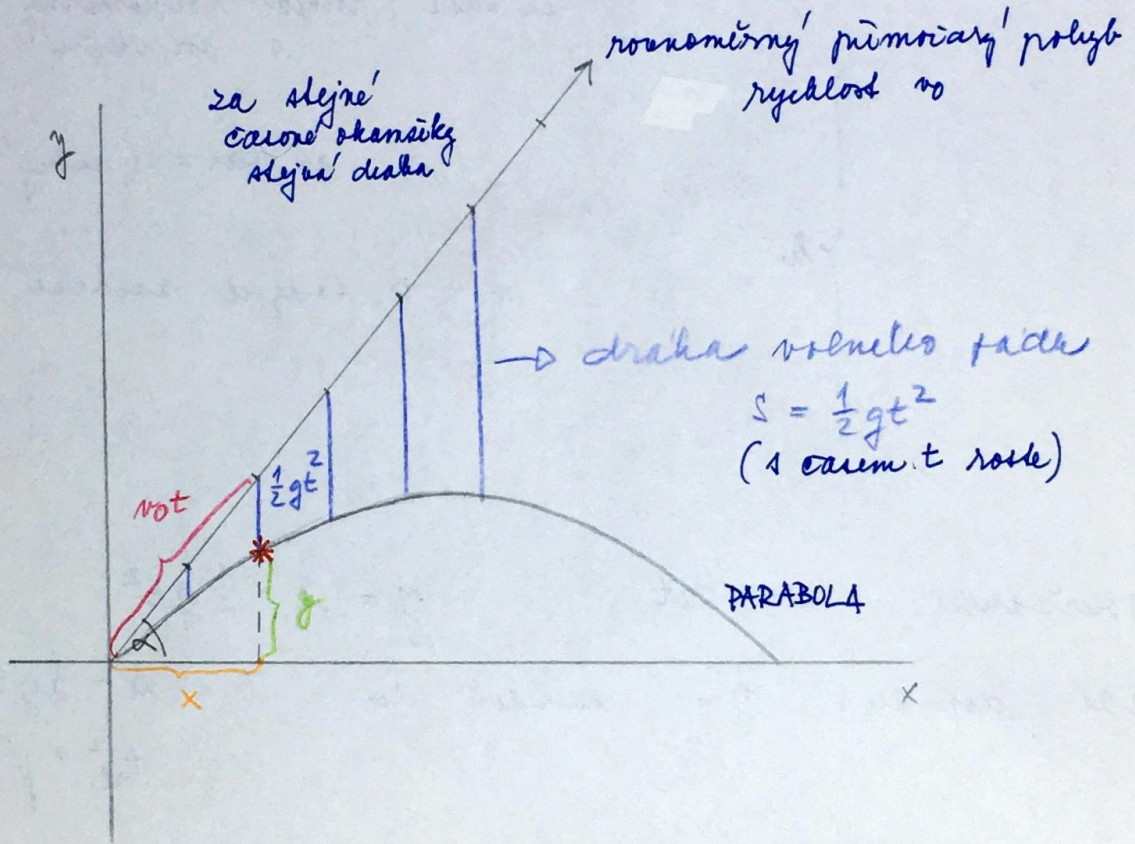 rovnoměrný přímočarý pohyb
rychlost v0
za stejné
časové okamžiky
stejná dráha
y
dráha volného pádu
S = 1/2 gt²
(s časem t roste)
v0t
1/2 gt²
y
α
PARABOLA
x
x